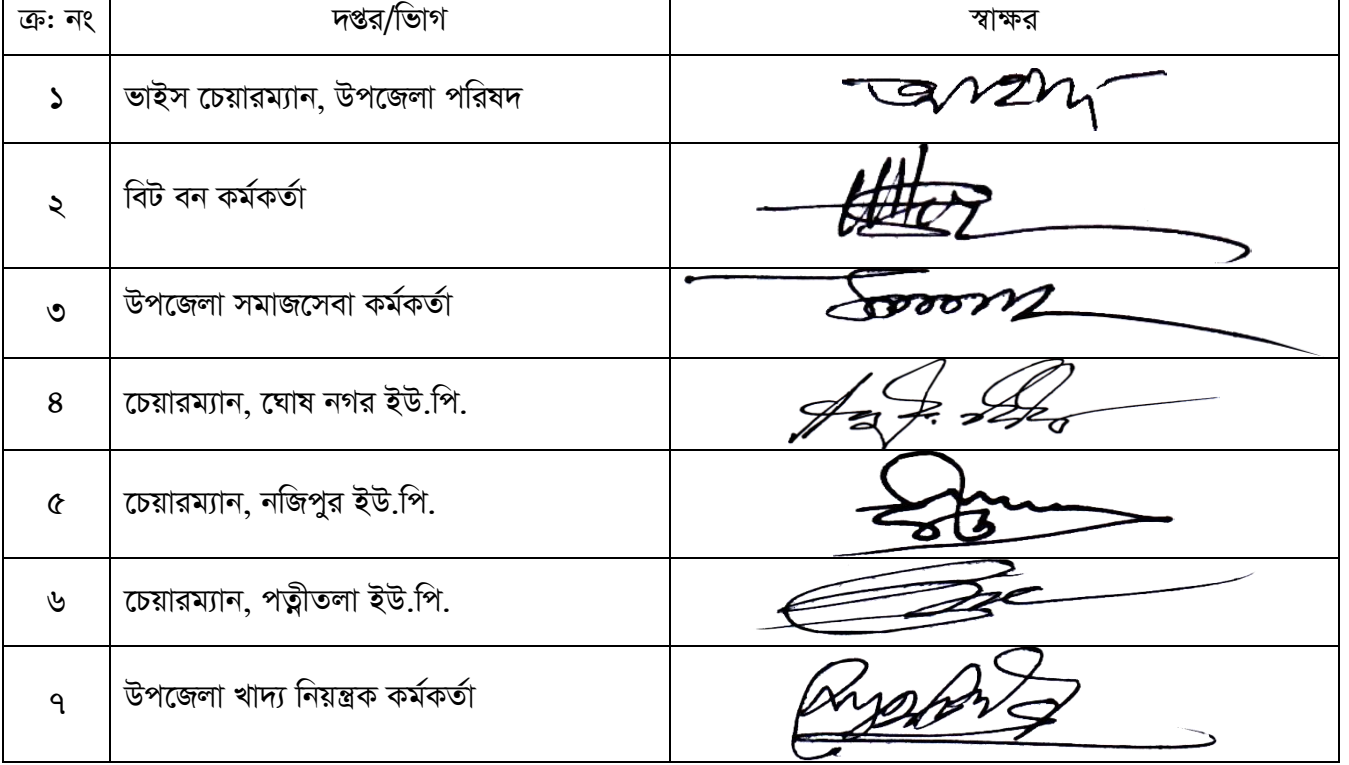 ক্র: নং দপ্তর/ভিাগ স্বাক্ষর
১ ভাইস চেয়ারম্যান, উপজেলা পরিষদ
২ বিট বন কর্মকর্তা
৩ উপজেলা সমাজসেবা কর্মকর্তা
৪ চেয়ারম্যান, ঘোষ নগর ইউ.পি.
৫ চেয়ারম্যান, নজিপুর ইউ.পি.
৬ চেয়ারম্যান, পত্নীতলা ইউ.পি.
৭ উপজেলা খাদ্য নিয়ন্ত্রক কর্মকর্তা